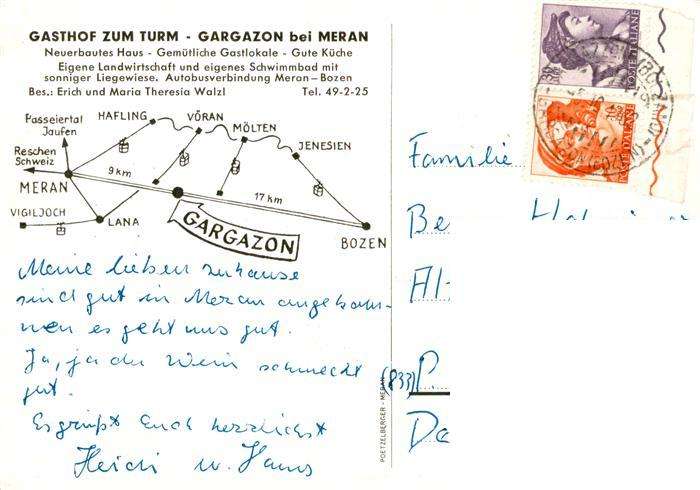 GASTHOF ZUM TURM - GARGAZON bei MERAN
Neuerbautes Haus - Gemütliche Gastlokale - Gute Küche
Eigene Landwirtschaft und eigenes Schwimmbad mit
sonniger Liegewiese. Autobusverbindung Meran–Bozen
Bes.: Erich und Maria Theresia Walzl Tel. 49-2-25
HAFLING
VÖRAN
MÖLTEN
JENESIEN
Passeiertal
Jaufen
Reschen
Schweiz
MERAN
9 km
17 km
VIGILJOCH
LANA
GARGAZON
BOZEN
Meine lieben zuhause
sind gut in Meran angekom-
men es geht uns gut.
Ja, ja der Wein schmeckt
gut.
Es grüßt Euch herzlichst
Heidi u. Hans
POETZELBERGER - MERAN
POSTE ITALIANE
POSTE ITALIANE
Familie
Be
Al
(833) P.
Da